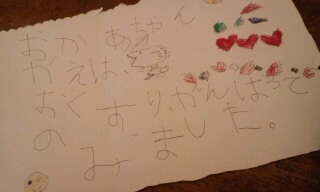 おかあちゃん
かえは、
おくすり、がんばって
のみました。